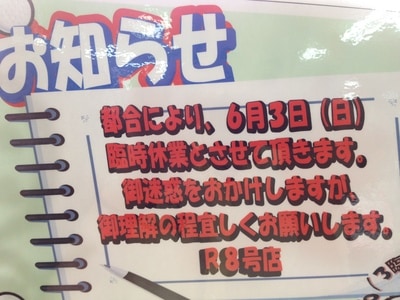 お知らせ
都合により、6月3日（日）
臨時休業とさせて頂きます。
御迷惑をおかけしますが、
御理解の程宜しくお願いします。
R8号店